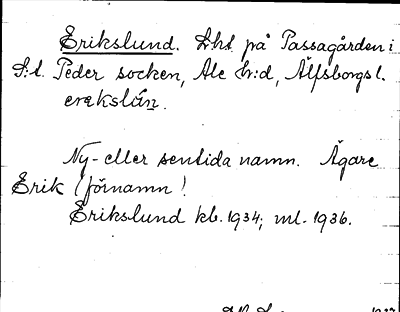 Erikslund. Lht på Passagården i
S:t. Peder socken, Ale h:d, Älfsborgs l.
erəkslún.
Ny- eller sentida namn. Ägare
Erik (förnamn!
Erikslund kb. 1934; ml. 1936.